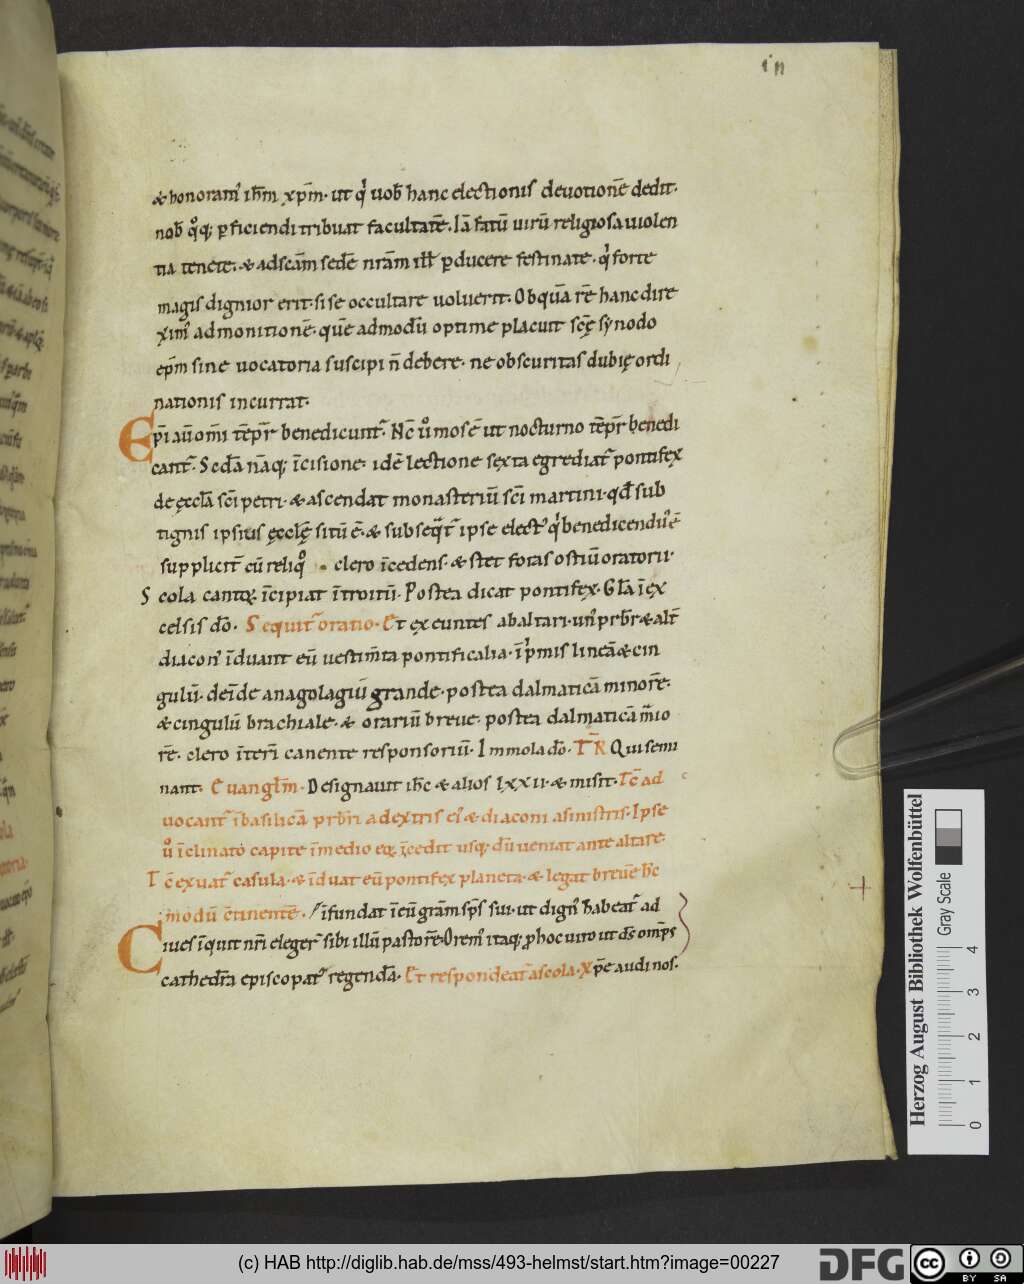 & honoram' ih̄m xp̄m · ut q' uob̄ hanc electionis deuotionē dedit ·
nob̄ q°q; pficiendi tribuat facultatē · Iā fatū uirū religiosa uiolen
tia tenete · & ad scām sedē nrām ill' pducere festinate · q' forte
magis dignior erit · si se occultare uoluerit · Ob quā rē hanc dire
xim' admonitionē · quē admodū optime placuit scę synodo
ep̄m sine uocatoria suscipi n̄ debere · ne obscuritas dubię ordi
nationis incurrat ·
Ep̄i aū omī tēpr̄ benedicunt̄ · Nc̄ u° mos ē ut nocturno tēpr̄ benedi
cant̄ · Scdā nāq; īcisione · idē lectione sexta egrediat̄ pontifex
de ęccl̄a sc̄i petri · & ascendat monasteriū sc̄i martini · qd̄ sub
tignis ipsius ęccl̄ę sitū ē · & subseqt̄ ipse elect' q' benedicendus ē
supplicit̄ cū reliq° clero īcedens · & stet foras ostiū oratorii ·
Scola cantoꝝ īcipiat ītroitū · Postea dicat pontifex · Gl̄a ī ex
celsis dō · Sequit̄ oratio · Et exeuntes ab altari · un' prb̄r & alt̄
diacon' īduant eū uestim̄ta pontificalia · īp'mis lineā & cin
gulū · deīde anagolagiū grande · postea dalmaticā minorē ·
& cingulū brachiale · & orariū breue · postea dalmaticā m̄io
rē · clero īteri canente responsoriū · Immola dō · Tr̄ R Qui semi
nant · Euangl̄m · Designauit ih̄c & alios lxxii · & misit · Tc̄ ad
uocant̄ ī basilicā prb̄ri a dextris ei' & diaconi a sinistris · Ipse
u° īclinato capite ī medio eoꝝ īcedit usq; dū ueniat ante altare ·
Tc̄ exuat̄ casula · & īduat eū pontifex planeta · & legat breuē hc̄
modū c̄tinentē · īfundat ī eū gr̄am sp̄s sui · ut dign' habeat̄ ad
Ciues īquit nr̄i eleger̄ sibi illū pastorē · Orem' itaq; p hoc uiro ut ds̄ omp̄s
cathedr̄a episcopat' regendā · Et respondeat̄ a scola · Xp̄e audi nos ·
Herzog August Bibliothek Wolfenbüttel
Gray Scale
0 1 2 3 4
(c) HAB http://diglib.hab.de/mss/493-helmst/start.htm?image=00227
DFG
cc BY SA